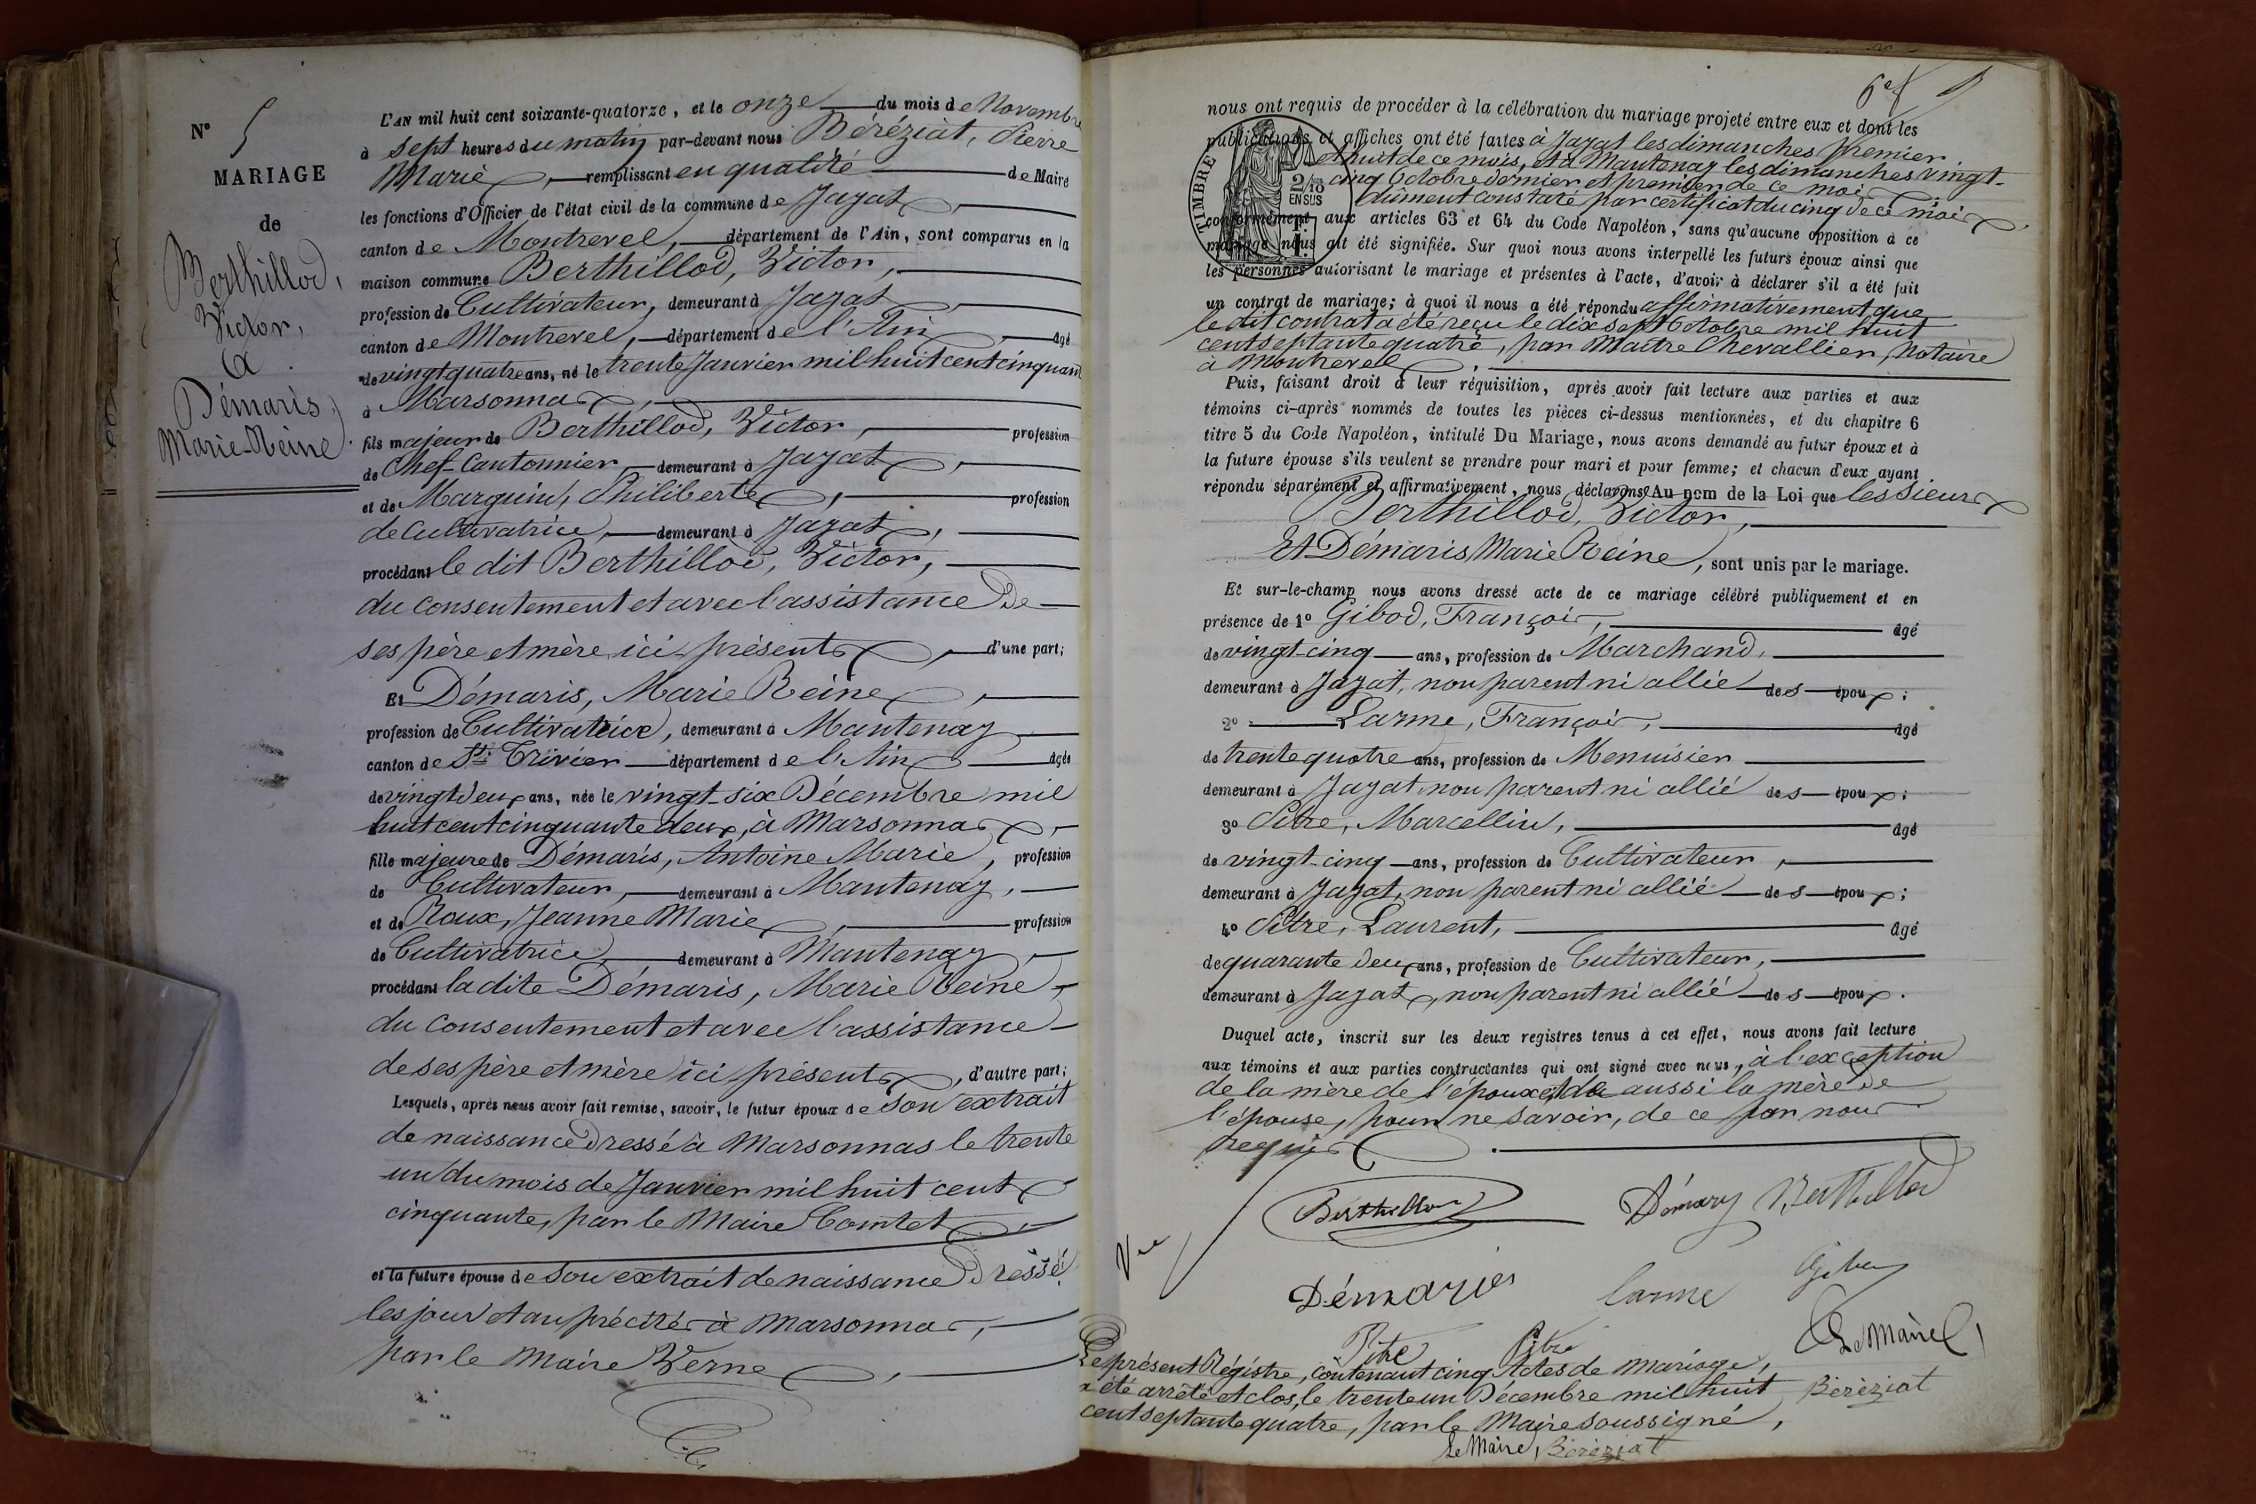 N° 5
MARIAGE
de
Berthillod,
Victor,
&
Démaris
Marie-Reine.
L'AN mil huit cent soixante-quatorze, et le onze du mois de Novembre
à sept heures du matin par-devant nous Béréziat, Pierre
Marie, remplissant en qualité de Maire
les fonctions d'Officier de l'état civil de la commune de Jayat,
canton de Montrevel, département de l'Ain, sont comparus en la
maison commune Berthillod, Victor,
profession de Cultivateur, demeurant à Jayat,
canton de Montrevel, département de l'Ain, âgé
de vingt quatre ans, né le trente Janvier mil huit cent cinquante
à Marsonnas,
fils majeur de Berthillod, Victor, profession
de Chef-Cantonnier, demeurant à Jayat,
et de Marguin, Philiberte, profession
de Cultivatrice, demeurant à Jayat,
procédant le dit Berthillod, Victor,
du consentement et avec l'assistance de
ses père et mère ici présents, d'une part;
Et Démaris, Marie Reine,
profession de Cultivatrice, demeurant à Mantenay
canton de St Trivier département de l'Ain âgée
de vingt deux ans, née le vingt-six Décembre mil
huit cent cinquante deux, à Marsonnas,
fille majeure de Démaris, Antoine Marie, profession
de Cultivateur, demeurant à Mantenay,
et de Roux, Jeanne Marie, profession
de Cultivatrice, demeurant à Mantenay,
procédant la dite Démaris, Marie Reine,
du consentement et avec l'assistance
de ses père et mère ici présents, d'autre part;
Lesquels, après nous avoir fait remise, savoir, le futur époux de son extrait
de naissance dressé à Marsonnas le trente
un du mois de Janvier mil huit cent
cinquante, par le Maire Comtet,
et la future épouse de son extrait de naissance dressé
les jour et an précités à Marsonnas,
par le Maire Verne,
nous ont requis de procéder à la célébration du mariage projeté entre eux et dont les
publications et affiches ont été faites à Jayat les dimanches premier
et huit de ce mois, et à Mantenay les dimanches vingt-
cinq Octobre dernier et premier de ce mois
dûment constaté par certificat du cinq de ce mois
TIMBRE
2/10
EN SUS
1 F.
conformément aux articles 63 et 64 du Code Napoléon, sans qu'aucune opposition à ce
mariage nous ait été signifiée. Sur quoi nous avons interpellé les futurs époux ainsi que
les personnes autorisant le mariage et présentes à l'acte, d'avoir à déclarer s'il a été fait
un contrat de mariage; à quoi il nous a été répondu affirmativement que
le dit contrat a été reçu le dix sept Octobre mil huit
cent septante quatre, par Maître Chevallier, Notaire
à Montrevel.
Puis, faisant droit à leur réquisition, après avoir fait lecture aux parties et aux
témoins ci-après nommés de toutes les pièces ci-dessus mentionnées, et du chapitre 6
titre 5 du Code Napoléon, intitulé Du Mariage, nous avons demandé au futur époux et à
la future épouse s'ils veulent se prendre pour mari et pour femme; et chacun d'eux ayant
répondu séparément et affirmativement, nous déclarons Au nom de la Loi que les sieurs
Berthillod, Victor,
Et Démaris, Marie Reine, sont unis par le mariage.
Et sur-le-champ nous avons dressé acte de ce mariage célébré publiquement et en
présence de 1° Gibod, François, âgé
de vingt-cinq ans, profession de Marchand,
demeurant à Jayat, non parent ni allié des époux;
2° Larme, François, âgé
de trente quatre ans, profession de Menuisier
demeurant à Jayat non parent ni allié des époux;
3° Pitre, Marcellin, âgé
de vingt-cinq ans, profession de Cultivateur,
demeurant à Jayat, non parent ni allié des époux;
4° Pitre, Laurent, âgé
de quarante deux ans, profession de Cultivateur,
demeurant à Jayat, non parent ni allié des époux.
Duquel acte, inscrit sur les deux registres tenus à cet effet, nous avons fait lecture
aux témoins et aux parties contractantes qui ont signé avec nous, à l'exception
de la mère de l'époux et de aussi la mère de
l'épouse, pour ne savoir, de ce par nous
requis.
Berthillod Démary Berthillod
Vu
Démaries Larme Gibod
Pitre Pitre Le Maire,
Béréziat
Le présent Régistre, contenant cinq Actes de Mariage,
a été arrêté et clos, le trente un Décembre mil huit
cent septante quatre, par le Maire soussigné,
Le Maire, Béréziat